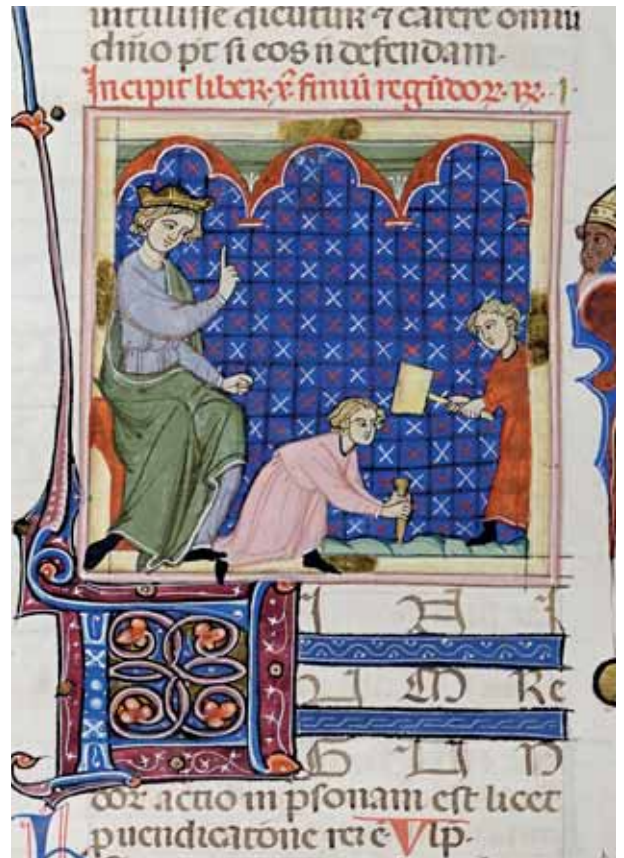 intulisse dicutur ⁊ carere omniu
dmo pt si eos n̄ defendam.
Incipit liber .x. finiū regūdoꝝ. R̄. i.
F I N I
U M Re
G U N
dor actio in psonam est licet
p uendicatone rei ē Vlp.